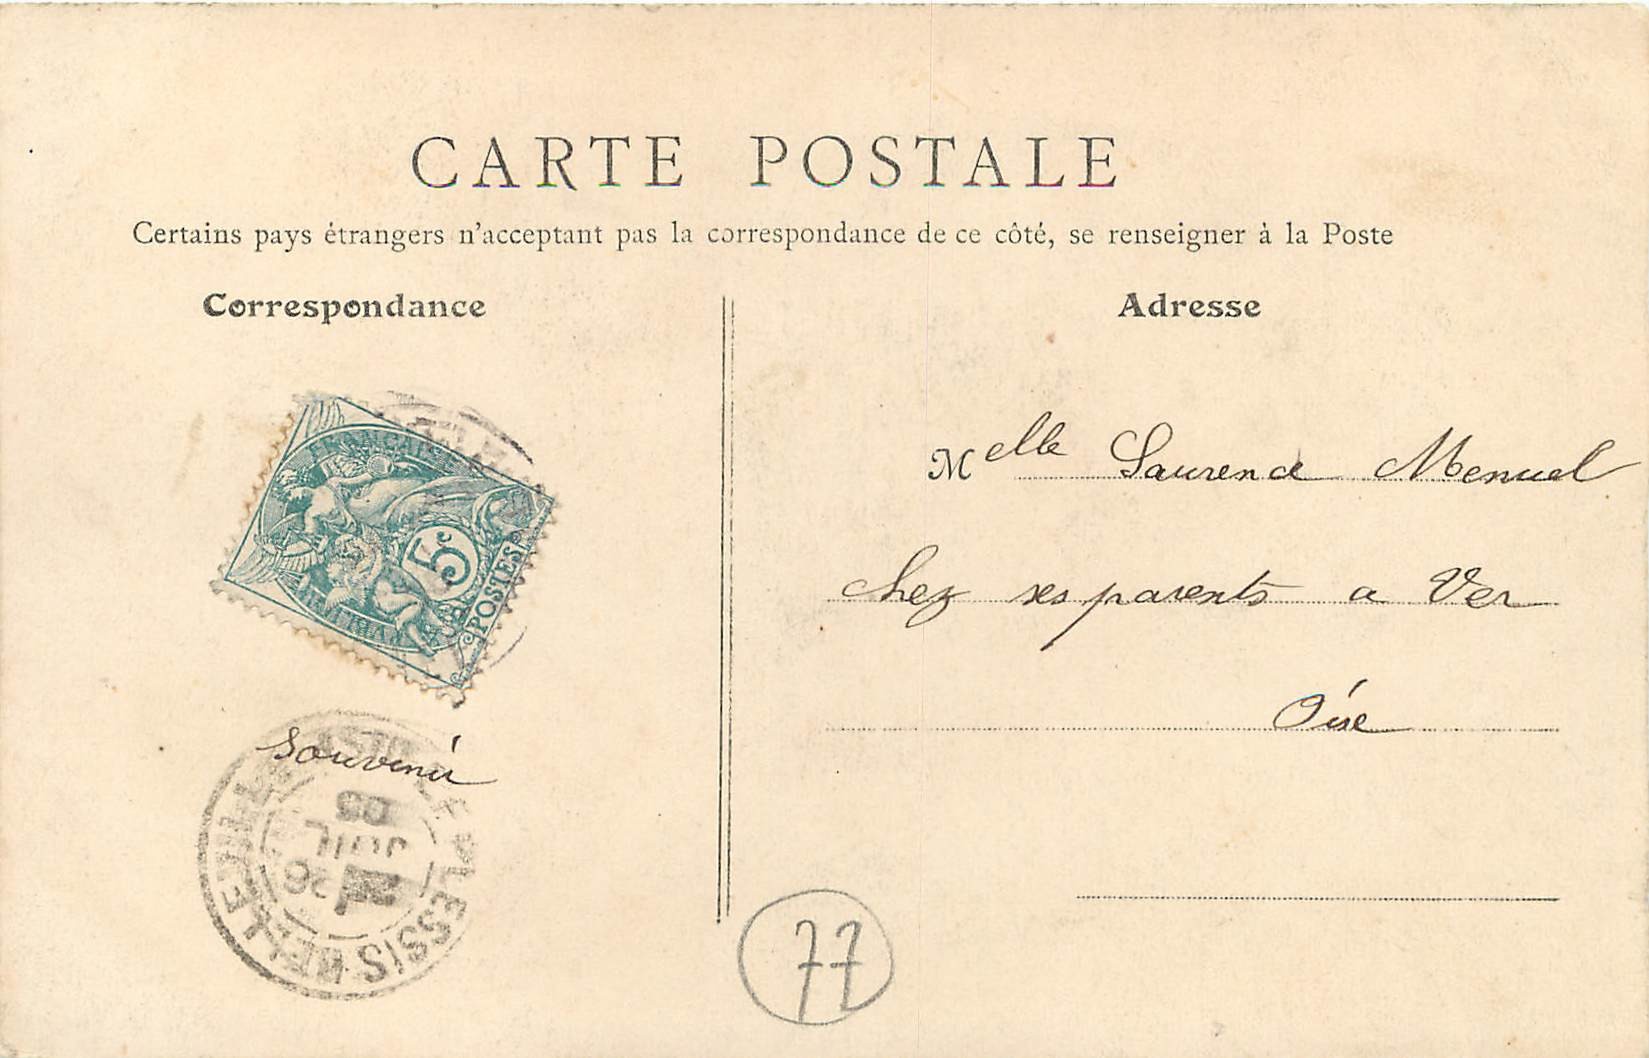 CARTE POSTALE
Certains pays étrangers n'acceptant pas la correspondance de ce côté, se renseigner à la Poste
Correspondance
Adresse
Melle Laurence Menuel
chez ses parents a Ver
Oise
5c
POSTES
souvenir
PLESSIS-BELLEVILLE
26
JUIL
05
77